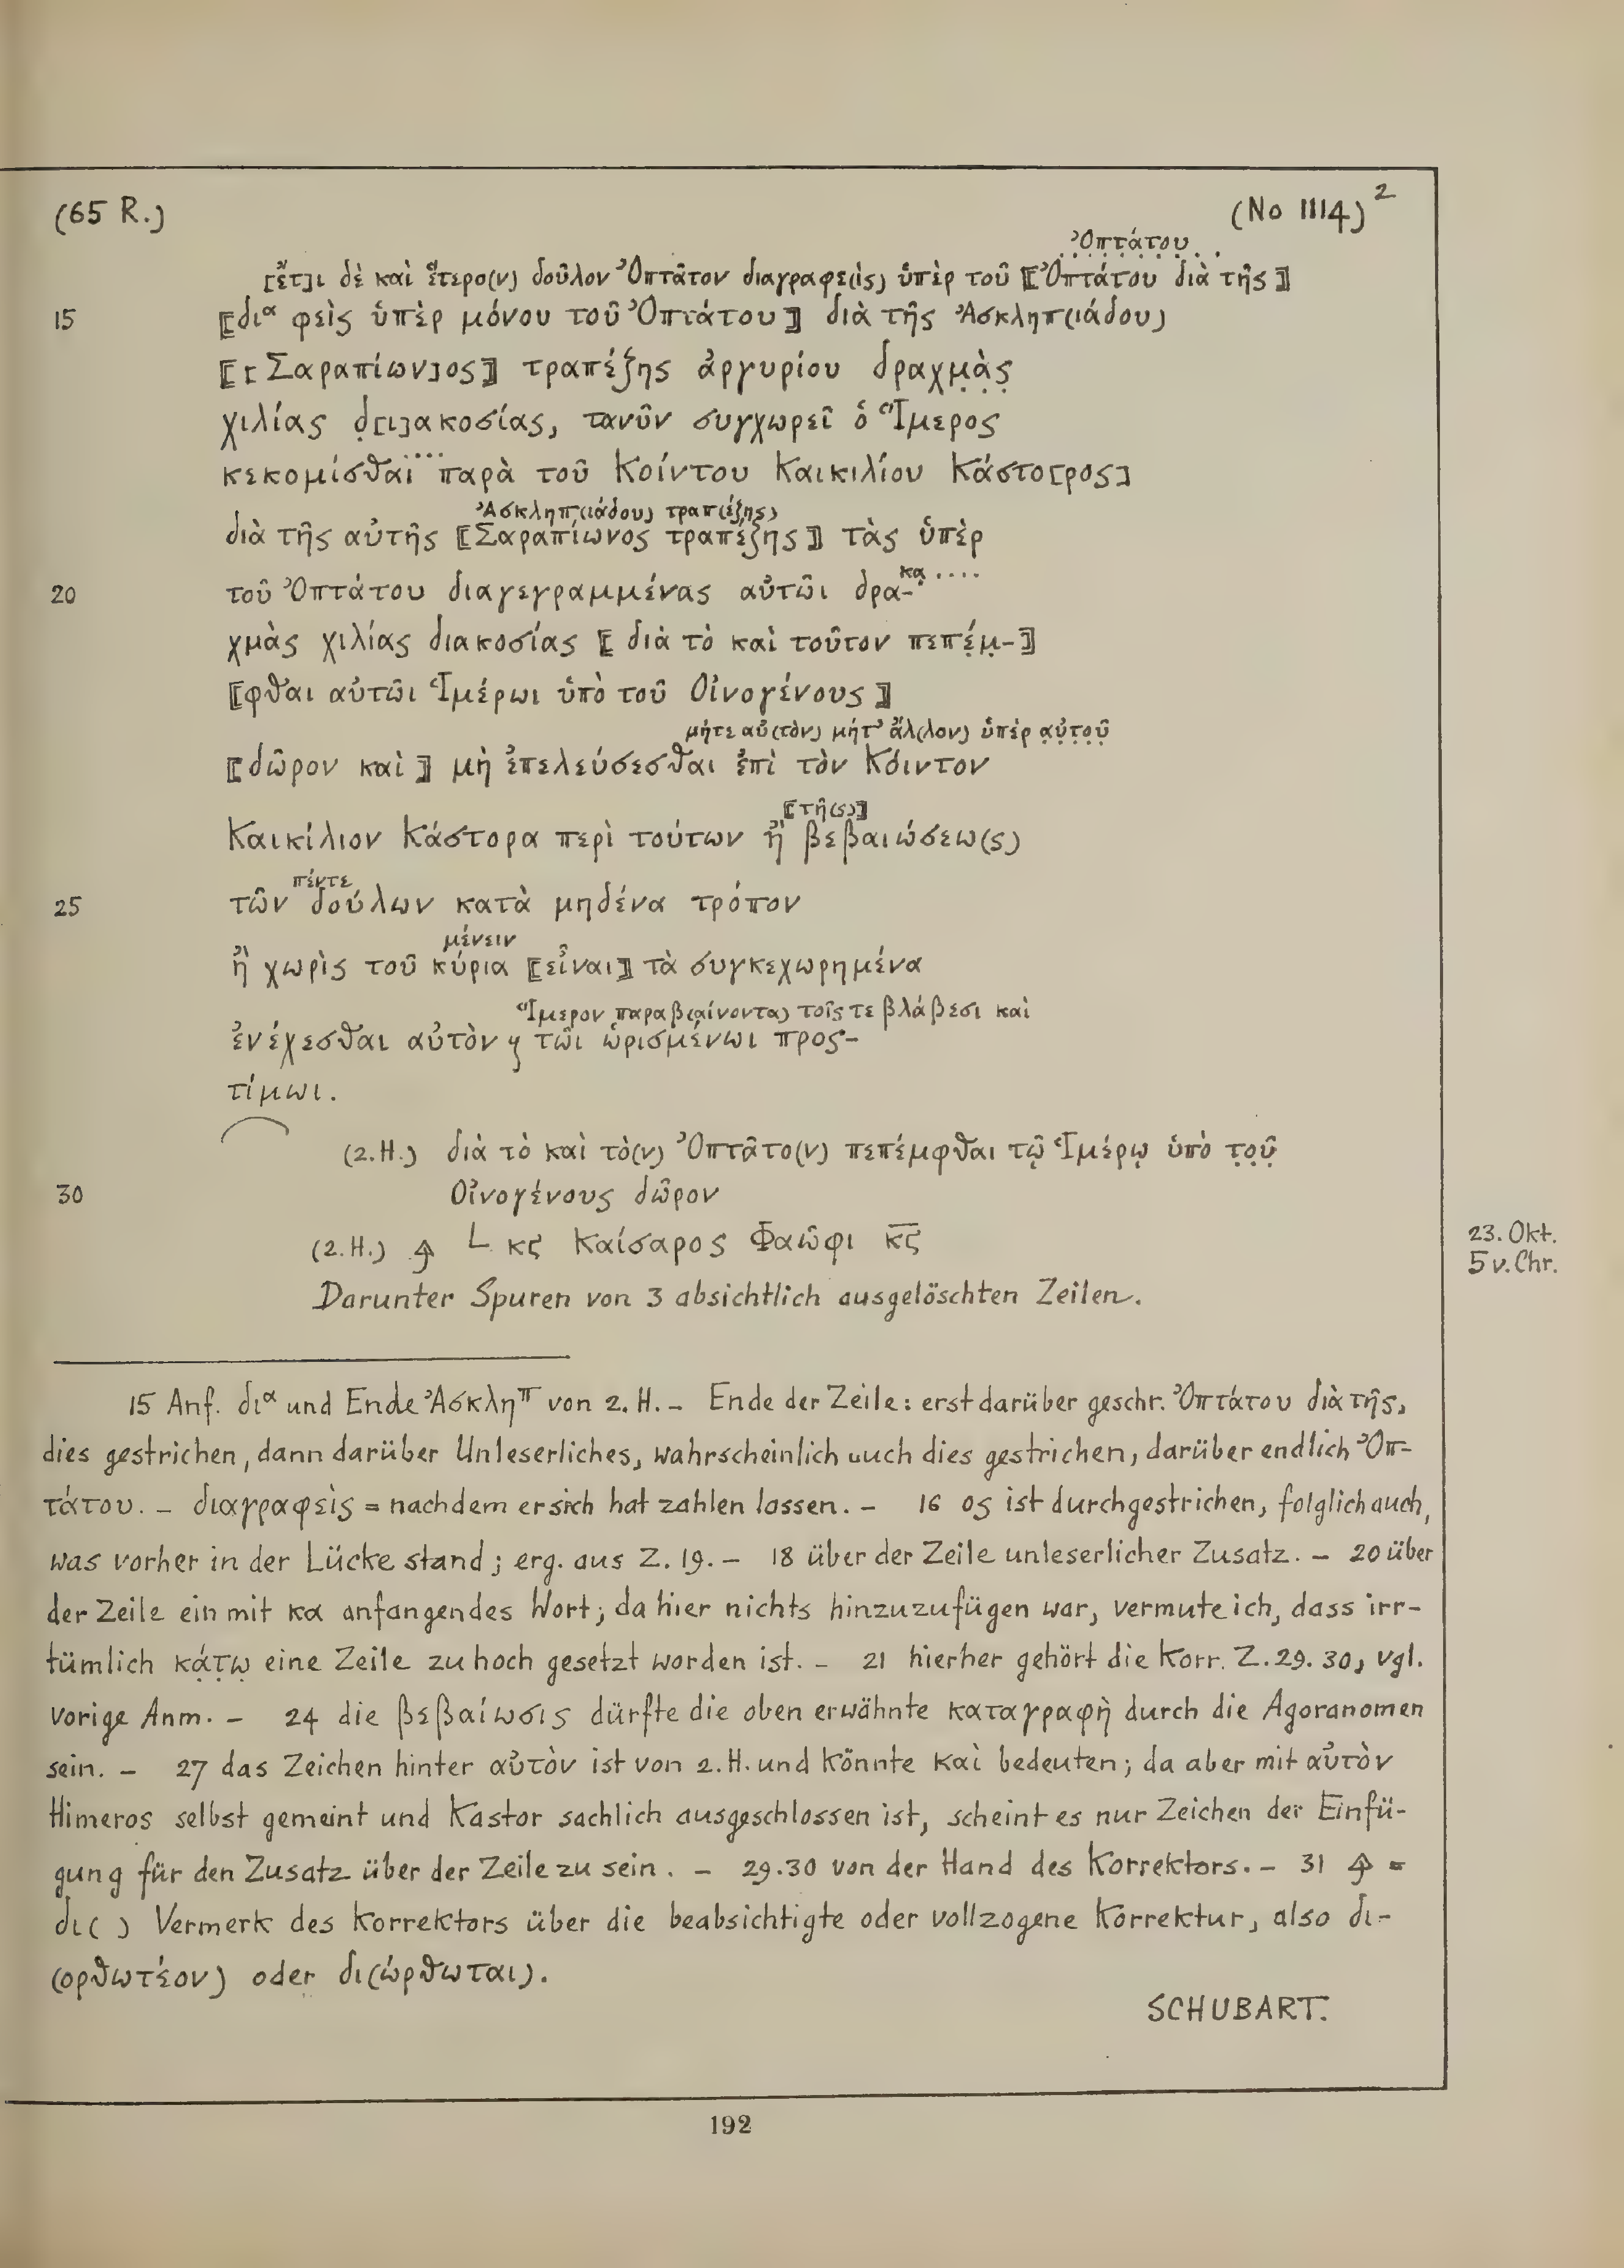 (65 R.) (No 1114)²
Ὀπτάτου . .
[ἔτ]ι δὲ καὶ ἕτερο(ν) δοῦλον Ὀπτᾶτον διαγραφε(ὶς) ὑπὲρ τοῦ ⟦Ὀπτάτου διὰ τῆς⟧
15 ⟦διᵅ φεὶς ὑπὲρ μόνου τοῦ Ὀπτάτου⟧ διὰ τῆς Ἀσκληπ(ιάδου)
⟦[Σαραπίων]ος⟧ τραπέζης ἀργυρίου δραχμ̣ὰ̣ς̣
χιλίας δ̣[ι]ακοσίας, τανῦν συγχωρεῖ ὁ Ἵμερος
. . . .
κεκομίσθαι παρὰ τοῦ Κοίντου Καικιλίου Κάστο[ρος]
Ἀσκληπ(ιάδου) τραπ(έζης)
διὰ τῆς αὐτῆς ⟦Σαραπίωνος τραπέζης⟧ τὰς ὑπὲρ
κα̣ . . . .
20 τοῦ Ὀπτάτου διαγεγραμμένας αὐτῶι δρα-
χμὰς χιλίας διακοσίας ⟦διὰ τὸ καὶ τοῦτον πεπέ̣μ̣-⟧
⟦φθαι αὐτῶι Ἱμέρωι ὑπὸ τοῦ Οἰνογένους⟧
μήτε αὐ(τὸν) μήτ’ ἄλ(λον) ὑπὲρ α̣ὐ̣τ̣ο̣ῦ̣
⟦δῶρον καὶ⟧ μὴ ἐπελεύσεσθαι ἐπὶ τὸν Κόιντον
⟦τῆ(ς)⟧
Καικίλιον Κάστορα περὶ τούτων ἢ βεβαιώσεω(ς)
πέντε
25 τῶν δούλων κατὰ μηδένα τρόπον
μένειν
ἢ χωρὶς τοῦ κύρια ⟦εἶναι⟧ τὰ συγκεχωρημένα
Ἵμερον παραβ(αίνοντα) τοῖς τε βλάβεσι καὶ
ἐνέχεσθαι αὐτὸν ɥ τῶι ὡρισμένωι προς-
τίμωι.
(2.H.) διὰ τὸ καὶ τὸ(ν) Ὀπτᾶτο(ν) πεπέμφθαι τῷ Ἱμέρῳ ὑπὸ τ̣ο̣ῦ̣
30 Οἰνογένους δῶρον
(2.H.) L κϛ Καίσαρος Φαῶφι κ̅ϛ̅
23. Okt.
5 v. Chr.
Darunter Spuren von 3 absichtlich ausgelöschten Zeilen.
15 Anf. διᵅ und Ende Ἀσκληπ von 2. H. – Ende der Zeile: erst darüber geschr. Ὀπτάτου διὰ τῆς,
dies gestrichen, dann darüber Unleserliches, wahrscheinlich auch dies gestrichen, darüber endlich Ὀπ-
τάτου. – διαγραφεὶς = nachdem er sich hat zahlen lassen. – 16 ος ist durchgestrichen, folglich auch,
was vorher in der Lücke stand; erg. aus Z. 19. – 18 über der Zeile unleserlicher Zusatz. – 20 über
der Zeile ein mit κα anfangendes Wort; da hier nichts hinzuzufügen war, vermute ich, dass irr-
tümlich κά̣τ̣ω̣ eine Zeile zu hoch gesetzt worden ist. – 21 hierher gehört die Korr. Z. 29. 30, vgl.
vorige Anm. – 24 die βεβαίωσις dürfte die oben erwähnte καταγραφὴ durch die Agoranomen
sein. – 27 das Zeichen hinter αὐτὸν ist von 2. H. und könnte καὶ bedeuten; da aber mit αὐτὸν
Himeros selbst gemeint und Kastor sachlich ausgeschlossen ist, scheint es nur Zeichen der Einfü-
gung für den Zusatz über der Zeile zu sein. – 29. 30 von der Hand des Korrektors. – 31 =
δι( ) Vermerk des Korrektors über die beabsichtigte oder vollzogene Korrektur, also δι-
(ορθωτέον) oder δι(ώρθωται).
SCHUBART.
192